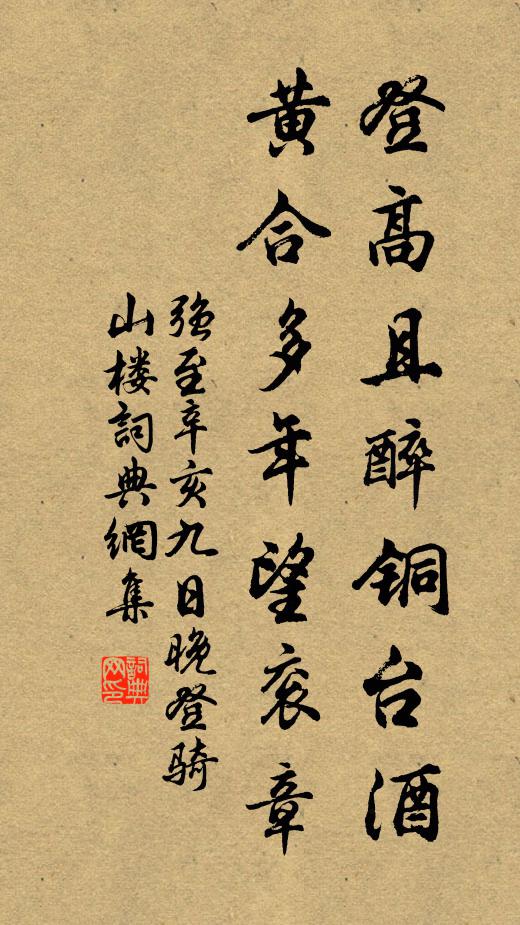 登高且醉铜台酒
黄合多年望衮章
强至辛亥九日晚登骑
山楼詞典網集
詞典网印